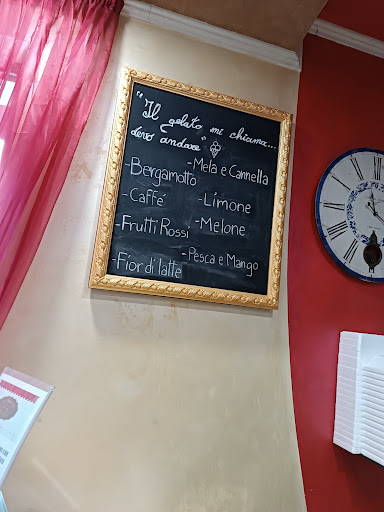 "Il gelato mi chiama...
devo andare"
-Bergamotto
-Caffé
-Frutti Rossi
-Fior di latte
-Mela e Cannella
-Limone
-Melone
-Pesca e Mango